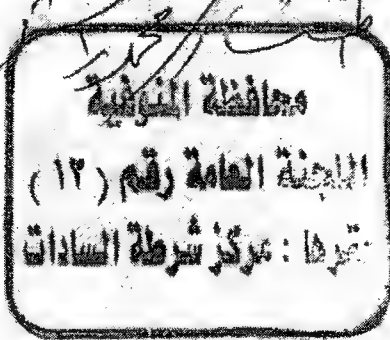 محافظة المنوفية
اللجنة العامة رقم ( ١٣ )
مقرها : مركز شرطة السادات